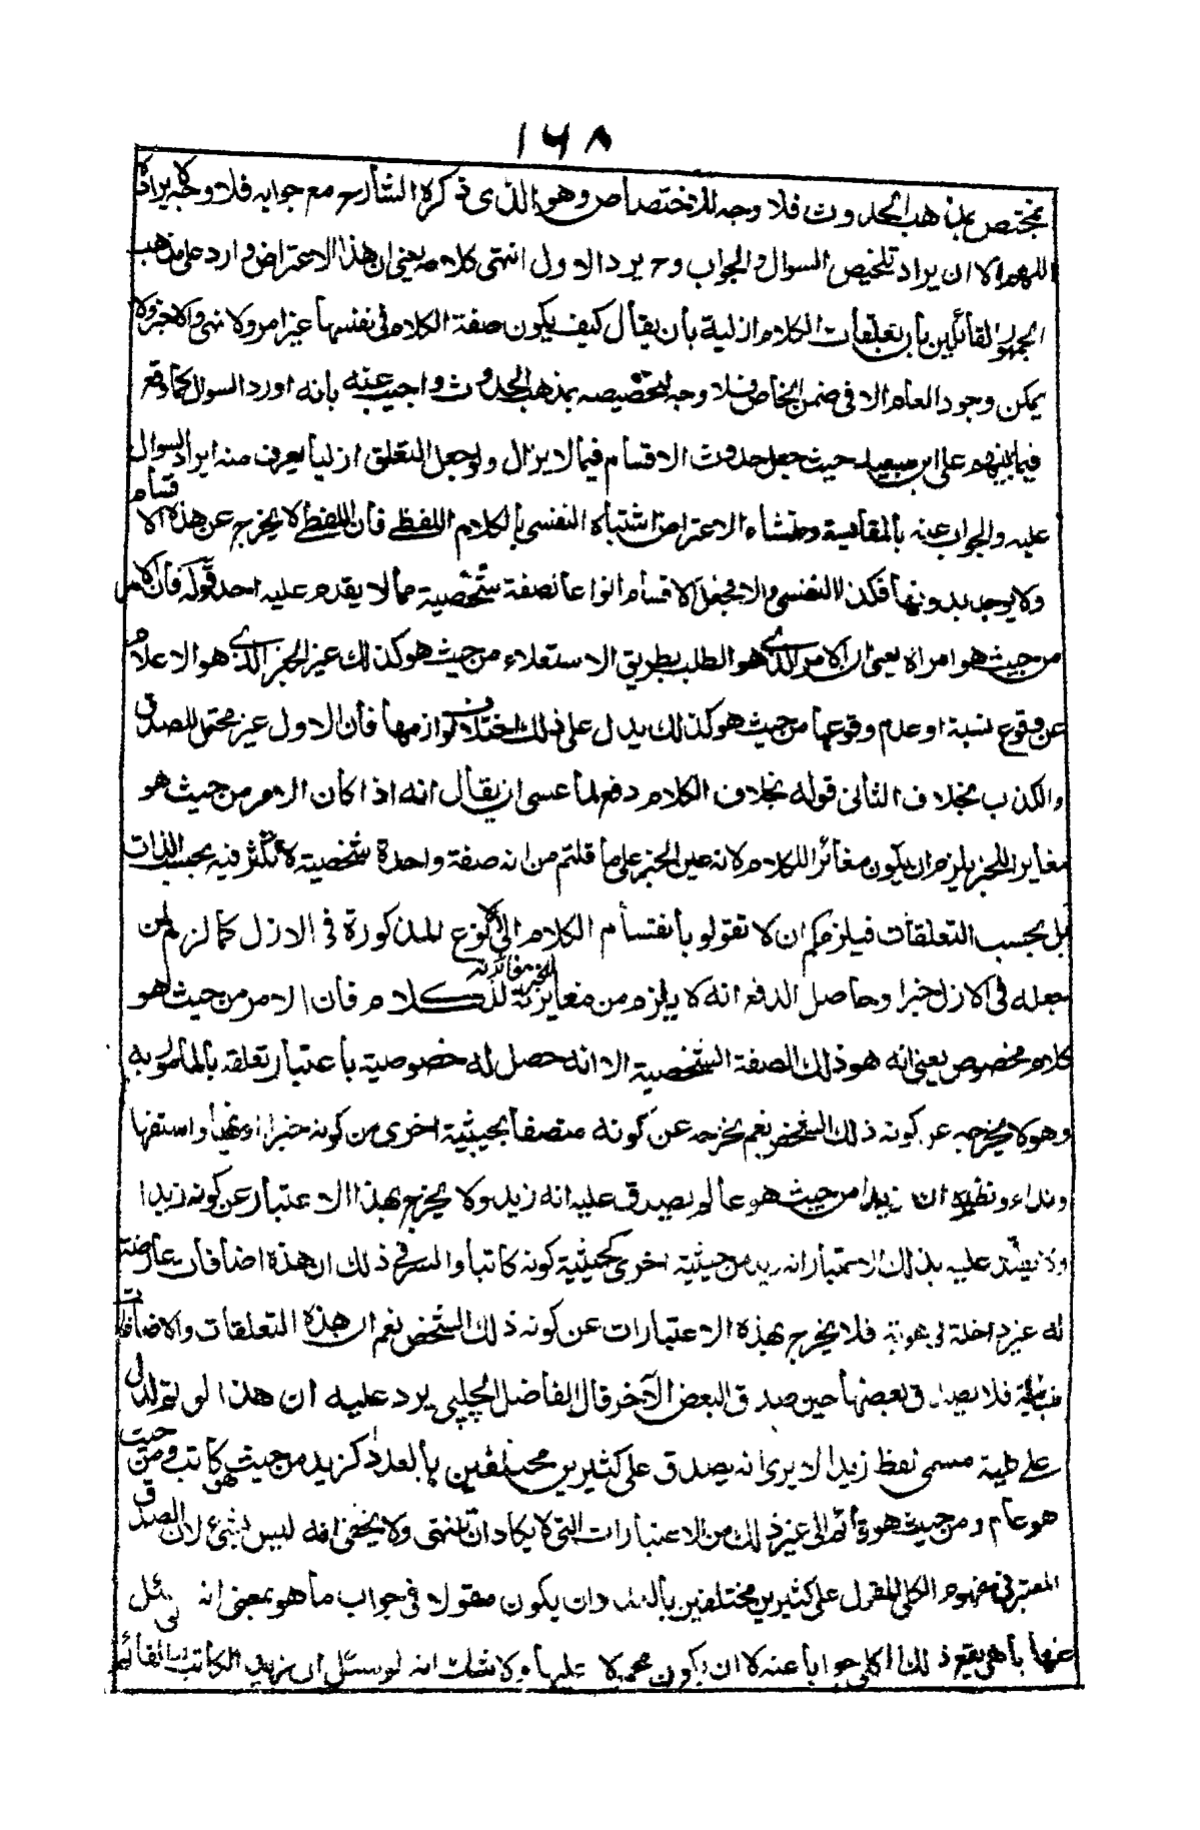 ١٦٨
بمختص بمذهب الحدوث فلا وجه للاختصاص وهو الذى ذكره الشارح مع جوابه فلا وجه لايراده
اللهم الا ان يراد تلخيص السوال والجواب وح يرد الاول انتهى كلامه يعنى ان هذا الاعتراض وارد على مذهب
الجمهور القائلين بان تعلقات الكلام ازلية بان يقال كيف يكون صفة الكلام فى نفسها غير امر ولا نهى ولا خبر ولا
يمكن وجود العام الا فى ضمن الخاص فلا وجه لتخصيصه بمذهب الحدوث واجيب عنه بانه اورد السوال كما وقع
فيما بينهم على ابن سعيد حيث جعل حدوث الاقسام فيما لا يزال ولو جعل التعلق ازليا يعرف منه ايراد السوال
عليه والجواب عنه بالمقايسة ومنشاء الاعتراض اشتباه النفسى بالكلام اللفظى فان اللفظى لا يخرج عن هذه الاقسام
ولا يوجد بدونها فكذا النفسى والا فجعل الاقسام انواعا لصفة شخصية مما لا يقدم عليه احد قوله فان الامر
من حيث هو امر اه يعنى ان الامر الذى هو الطلب بطريق الاستعلاء من حيث هو كذلك غير الخبر الذى هو الاعلام
عن وقوع نسبة او عدم وقوعها من حيث هو كذلك يدل على ذلك اختلاف لوازمها فان الاول غير محتمل للصدق
والكذب بخلاف الثانى قوله بخلاف الكلام دفع لما عسى ان يقال انه اذا كان الامر من حيث هو
مغاير اللخبر يلزم ان يكون مغائر اللكلام لانه عين الخبر على ما قلتم من انه صفة واحدة شخصية لا تكثر فيه بحسب الذات
بل بحسب التعلقات فيلزمكم ان لا تقولو بانقسام الكلام الى الانواع المذكورة فى الازل كما لزم لمن
جعله فى الازل خبرا وحاصل الدفع انه لا يلزم من مغايرته للخبر مغائرته للكلام فان الامر من حيث هو
كلام مخصوص يعنى انه هو ذلك الصفة الشخصية الا انه حصل له خصوصية باعتبار تعلقه بالمأمور به
وهو لا يخرجه عن كونه ذلك الشخص نعم يخرجه عن كونه متصفا بحيثية اخرى من كونه خبرا او نهيا واستفها
ونداء ونظيره ان زيدا من حيث هو عالم يصدق عليه انه زيد ولا يخرج بهذا الاعتبار عن كونه زيدا
ولا يصدق عليه بذلك الاعتبار انه زيد من حيثية اخرى كحيثية كونه كاتبا والسر فى ذلك ان هذه اضافات عارضة
له غير داخلة فى هويته فلا يخرج بهذه الاعتبارات عن كونه ذلك الشخص نعم ان هذه التعلقات والاضافات
متباينة فلا يصدق بعضها حين صدق البعض الآخر قال الفاضل الچلپى يرد عليه ان هذا لو تم لدل
على كلية مسمى لفظ زيد الا يرى انه يصدق على كثيرين مختلفين بالعدد كزيد من حيث هو كاتب ومن حيث
هو عالم ومن حيث هو قائم الى غير ذلك من الاعتبارات التى لا يكاد ان تنتهى ولا يخفى انه ليس بشئ لان الصدق
المعتبر فى مفهوم الكلى المقول على كثيرين مختلفين بالعدد ان يكون مقولا فى جواب ما هو بمعنى انه لو سئل
عنها بما هى يقع ذلك الكلى جوابا عنه لا ان يكون محمولا عليها ولا شك انه لو سئل ان زيد الكاتب القائم